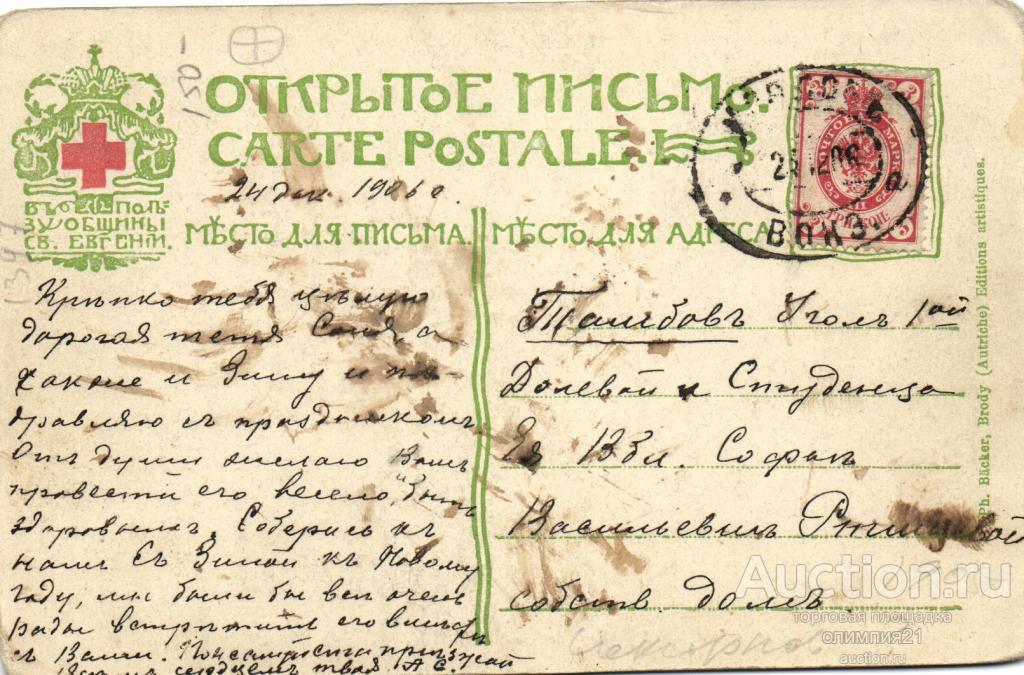 ОТКРЫТОЕ ПИСЬМО.
CARTE POSTALE.
ВЪ ПОЛЬ
ЗУ ОБЩИНЫ
СВ. ЕВГЕНІИ.
150-
24 дек. 1906 г.
МѢСТО ДЛЯ ПИСЬМА.
МѢСТО ДЛЯ АДРЕСА.
Крѣпко тебя цѣлую
дорогая тетя Соня а
также и Зину и по-
здравляю съ праздникомъ
Отъ души желаю Вамъ
провести его весело, быть
здоровыми. Соберись къ
намъ съ Зиной къ Новому
году, мы были бы всѣ очень
рады встрѣтить его вмѣстѣ
съ Вами. Пожалуйста пріѣзжай
твоя А. С.
Тамбовъ Уголъ 1ой
Долевой и Студенца
Ея Вбл. Софьѣ
Васильевнѣ
собств. домъ.
ВОКЗ
3
ПОЧТОВ МАРКА
Ph. Bäcker, Brody (Autriche) Editions artistiques.
Auction.ru
торговая площадка
олимпия21
auction.ru